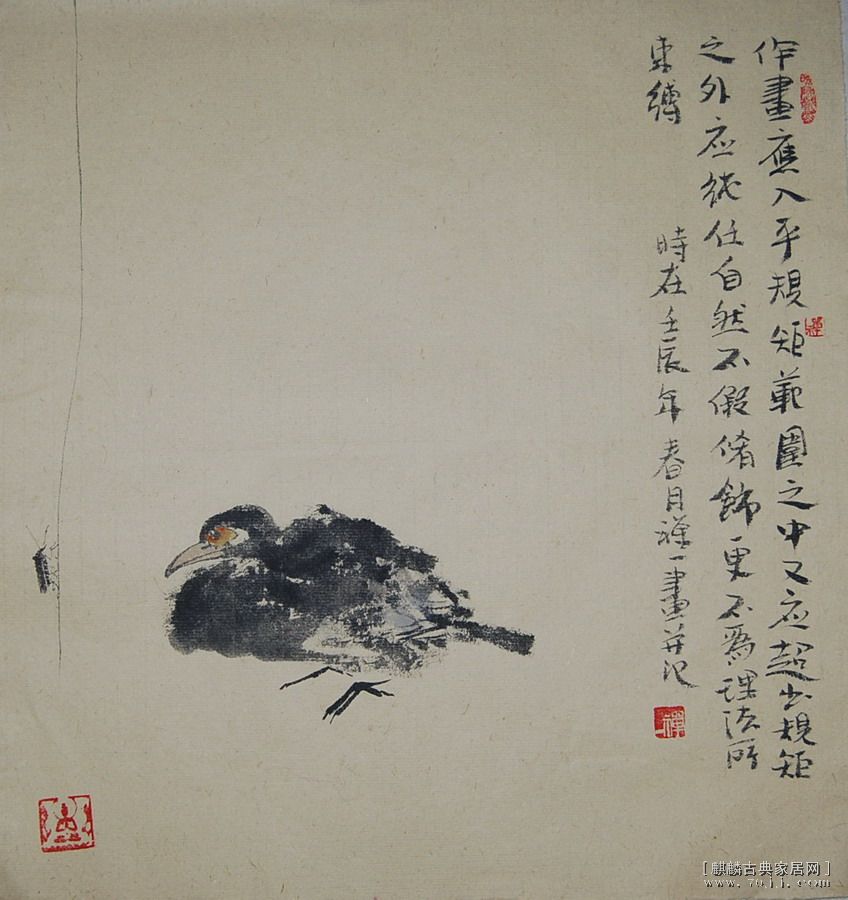 作畫應入乎規矩範圍之中又应超出規矩
之外应純任自然不假脩飾更不為理法所
束縛
時在壬辰年春月禪一畫并记
禪
[麒麟古典家居网]
www.7ojj.com